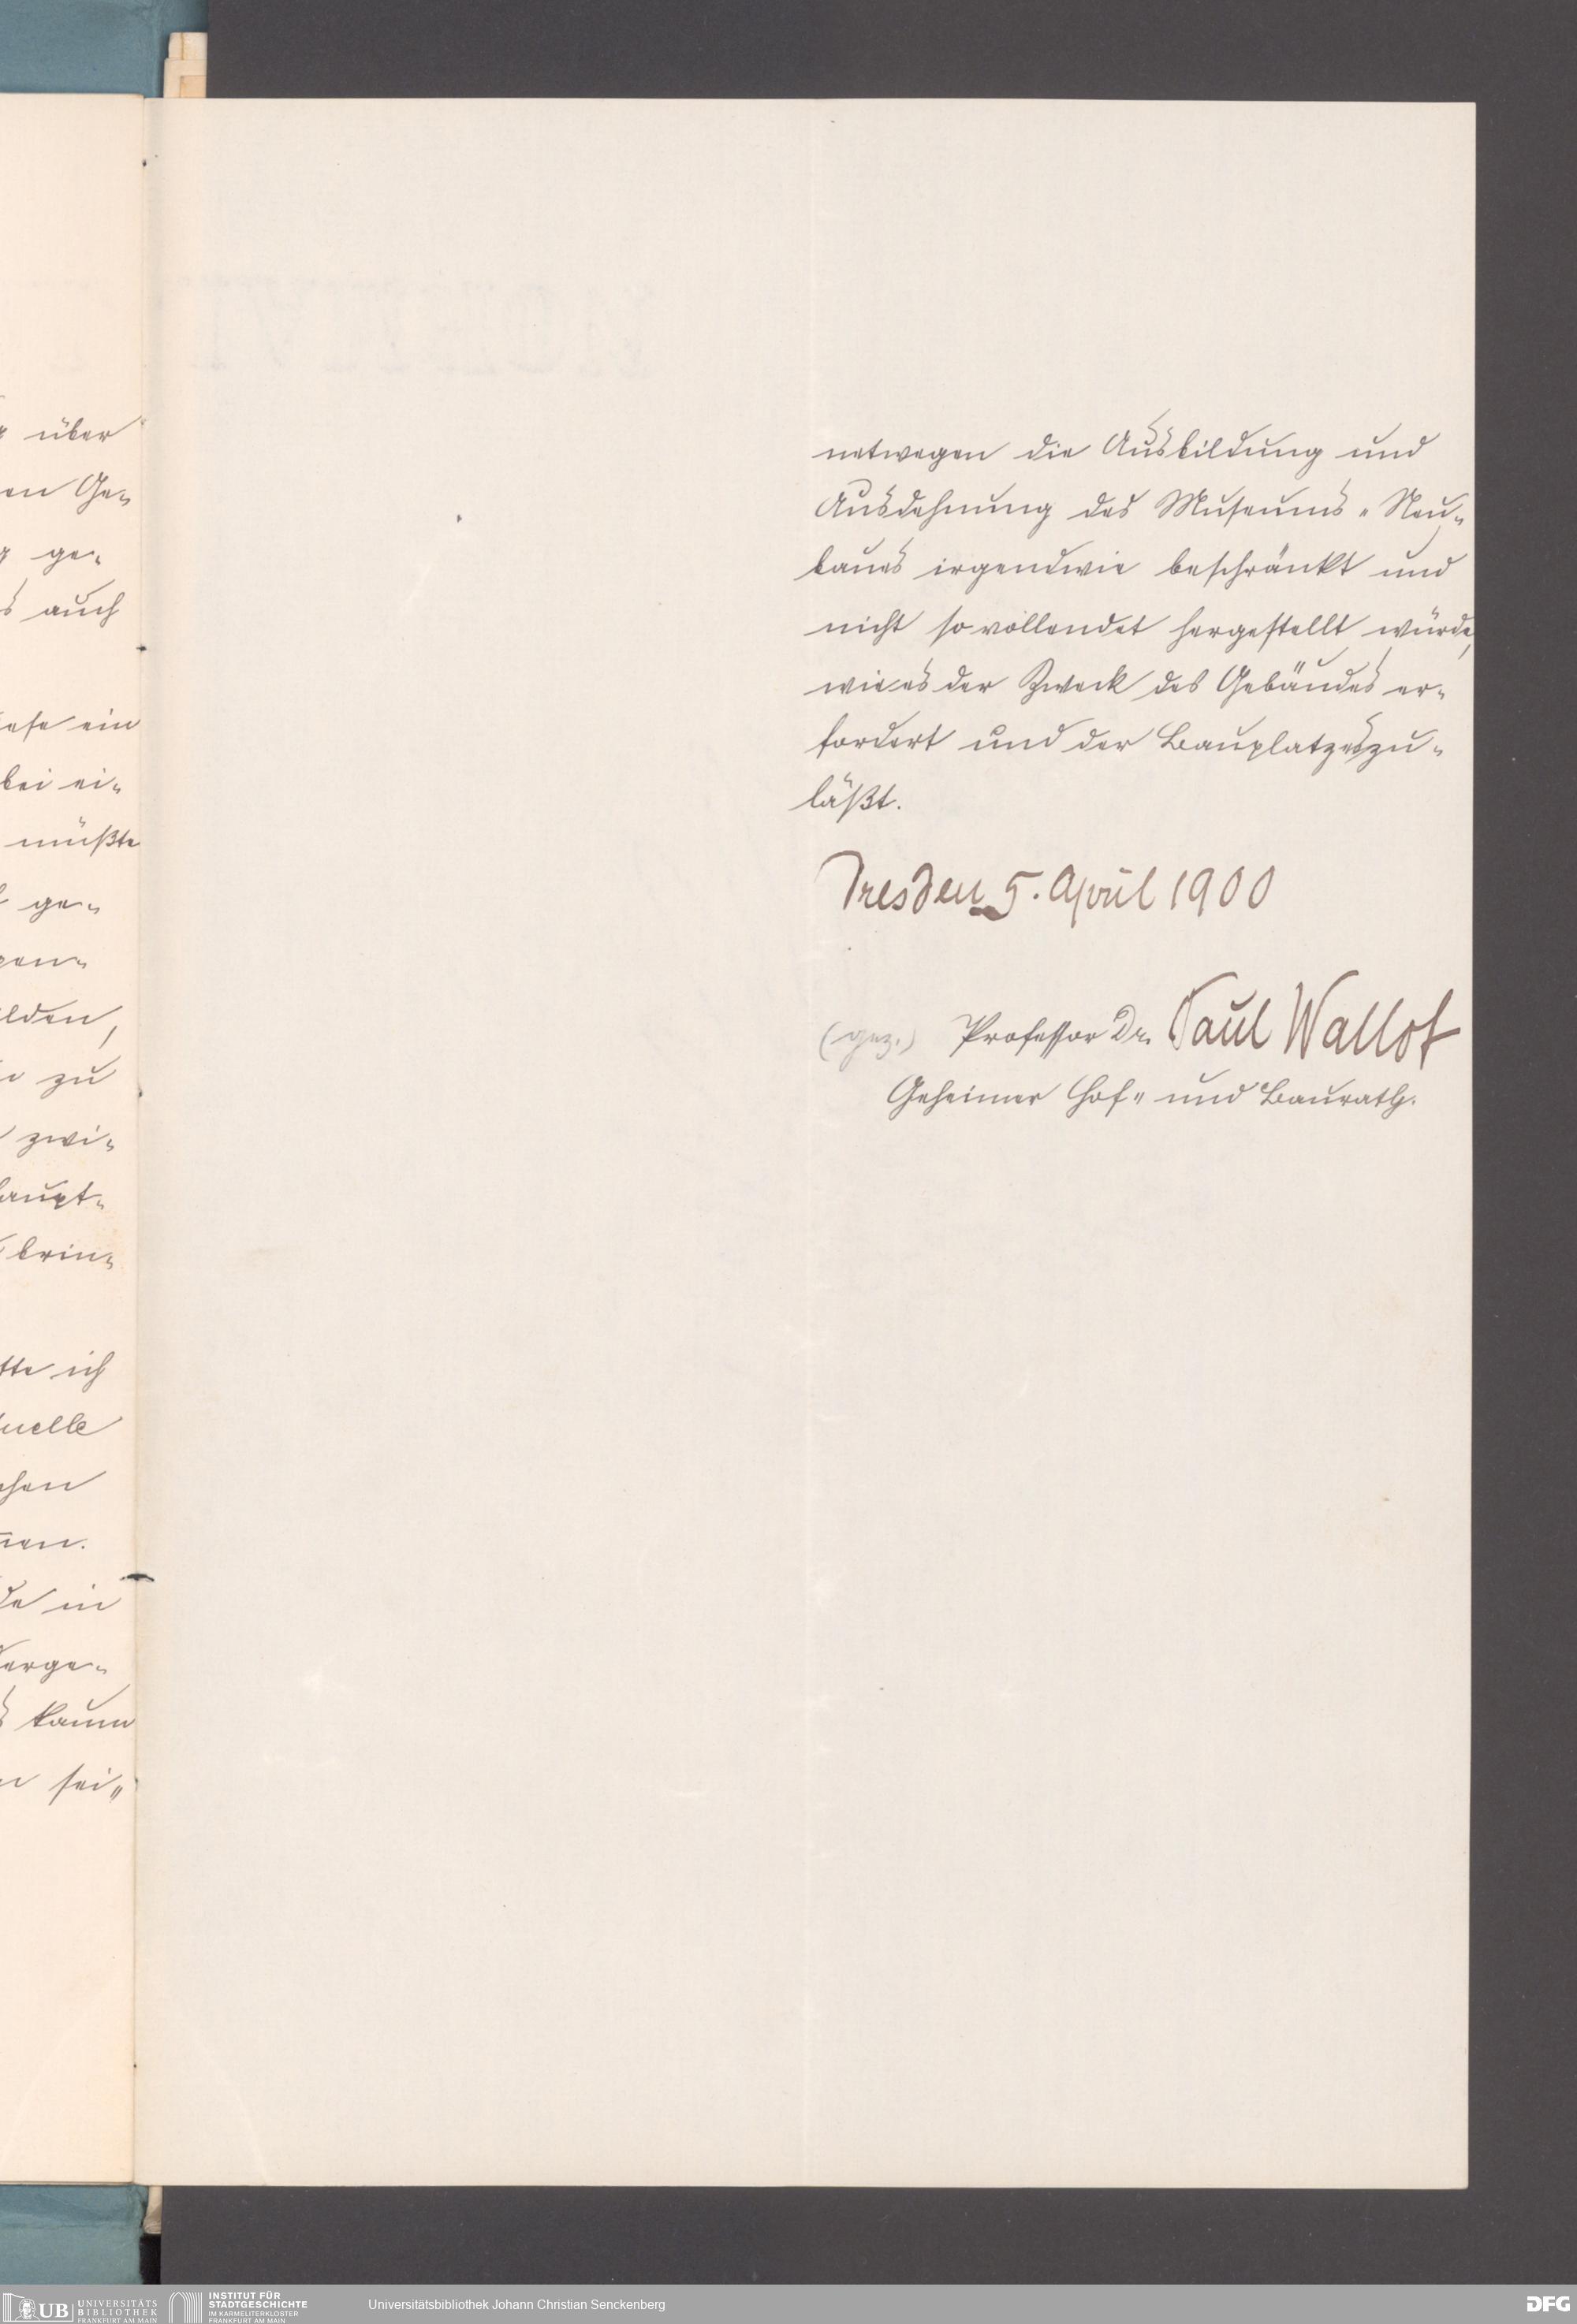 über
en Ge-
ge-
auch
ein
bei ei-
müßte
ge-
lden,
zu
zwi-
brin-
ich
in
kaum
sei-
netwegen die Ausbildung und
Ausdehnung des Museums-Neu-
baues irgendwie beschränkt und
nicht so vollendet hergestellt würde,
wie es der Zweck des Gebäudes er-
fordert und der Bauplatz es zu-
läßt.
Dresden 5. April 1900
(gez.) Professor Dr. Paul Wallot
Geheimer Hof- und Baurath.
UB UNIVERSITÄTS
BIBLIOTHEK
FRANKFURT AM MAIN
INSTITUT FÜR
STADTGESCHICHTE
IM KARMELITERKLOSTER
FRANKFURT AM MAIN
Universitätsbibliothek Johann Christian Senckenberg
DFG